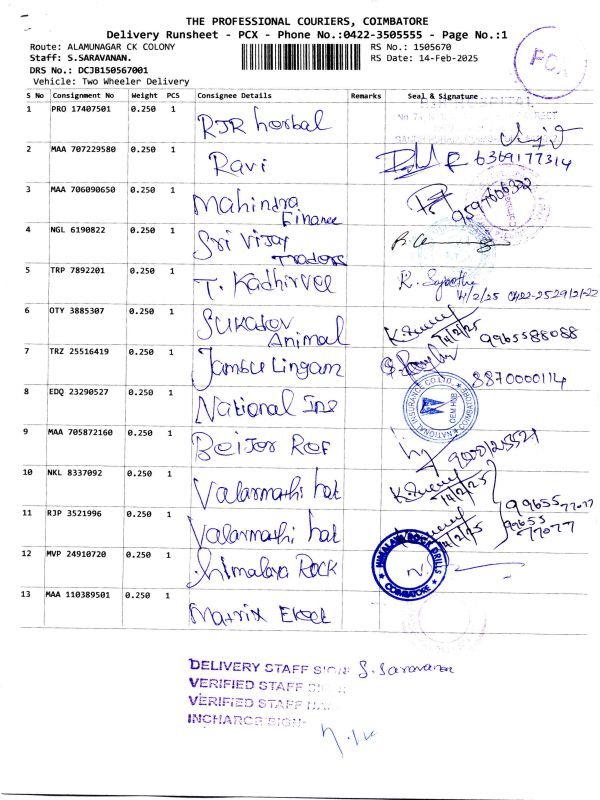 THE PROFESSIONAL COURIERS, COIMBATORE
Delivery Runsheet - PCX - Phone No.:0422-3505555 - Page No.:1
Route: ALAMUNAGAR CK COLONY
RS No.: 1505670
Staff: S.SARAVANAN.
RS Date: 14-Feb-2025
DRS No.: DCJB150567001
Vehicle: Two Wheeler Delivery
PCX
S No Consignment No Weight PCS Consignee Details Remarks Seal & Signature
1 PRO 17407501 0.250 1 RJR herbal
2 MAA 707229580 0.250 1 Ravi 6369177314
3 MAA 706090650 0.250 1 Mahindra Finance 9597606322
4 NGL 6190822 0.250 1 Sri Vijay Traders
5 TRP 7892201 0.250 1 T. Kadhirvel
14/2/25
6 OTY 3885307 0.250 1 Animal 14/2/25 9965588088
7 TRZ 25516419 0.250 1 Jambu Lingam 8870000114
8 EDQ 23290527 0.250 1 National Ins
NATIONAL INSURANCE CO LTD. COIMBATORE
9 MAA 705872160 0.250 1 Beijor Ref
10 NKL 8337092 0.250 1 Valarmathi hat 14/2/25 9965577077
11 RJP 3521996 0.250 1 Valarmathi hat 14/2/25 9965577077
12 MVP 24910720 0.250 1 himalaya Rock
HIMALAYA ROCK DRILLS COIMBATORE
13 MAA 110389501 0.250 1 Matrix
DELIVERY STAFF SIGN: S. Saravanan
VERIFIED STAFF SIGN:
VERIFIED STAFF NAME
INCHARGE SIGN: